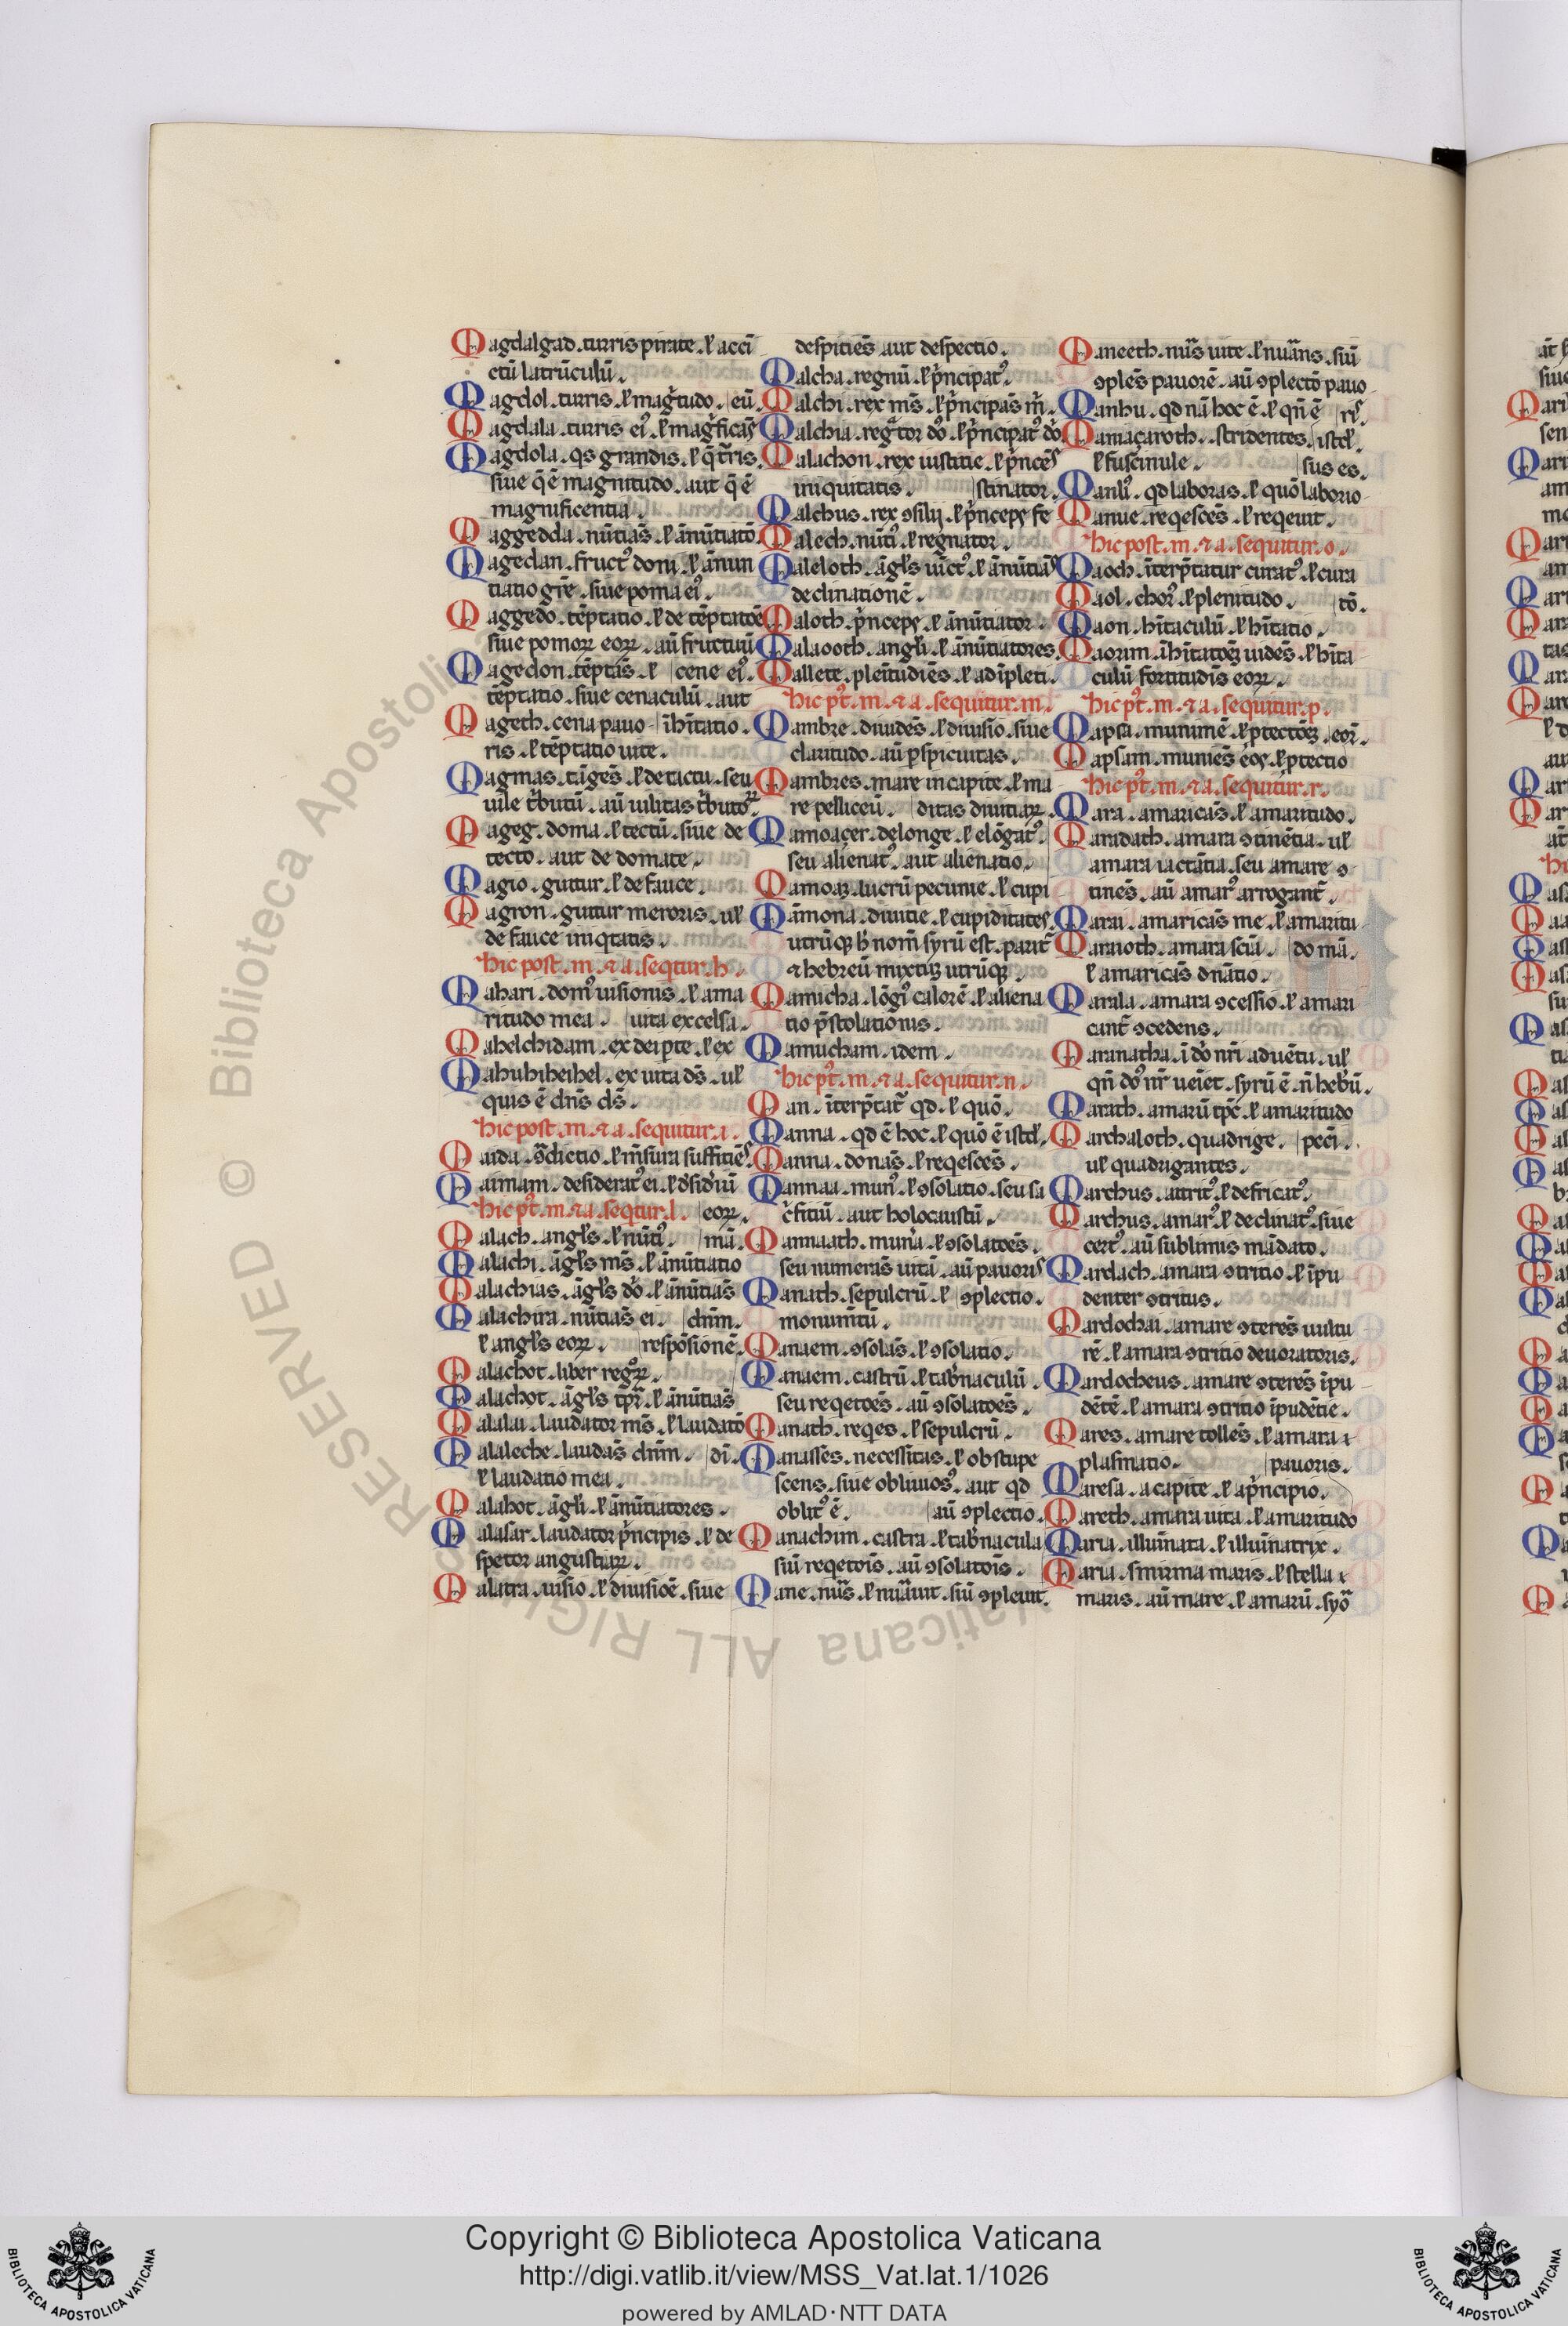 Magdalgad. turris pirate. ł acci
ctū latrūculū.
Magdol. turris. ł mag̃tudo. | eū.
Magdala. turris ei᾽. ł mag̃ficãs
Magdola. qs grandis. ł q̃ t̃ris.
siue q̃ ē magnitudo. aut q̃ ē
magnificentia.
Maggedda. nūtiãs. ł ānūtiatō.
Magedan. fruct᾽ dom᾽. ł ānun
tiatio gr̄e. siue poma ei᾽.
Maggedo. tēptatio. ł de tēptatōe
siue pomoꝝ eoꝝ. aū fructuū
Magedon. tēptãs. ł | cene ei᾽.
tēptatio. siue cenaculū. aut
Mageth. cena pauo | īhītatio.
ris. ł tēptatio uite.
Magmas. tāgēs. ł de tactu. seu
uile t̃butū. aū uilitas t̃butoꝝ.
Mageg. doma. ł tectū. siue de
tecto. aut de domate.
Magio. guttur. ł de fauce.
Magron. guttur meroris. uł
de fauce iniq̇tatis.
hic post. m. ⁊ a. seqtur. h.
Mahari. dom᾽ uisionis. ł ama
ritudo mea. | uita excelsa.
Mahelchidam. ex deipte. ł ex
Mahubiheihel. ex uita ds̄. uł
quis ē dn̄s ds̄.
hic post. m. ⁊ a. sequitur. i.
Maida. 9̄dictio. ł m̄sura sufficiēs.
Maimam. desiderat᾽ ei. ł d̓sid̓iū
hic p᾽t. m. ⁊ a. seqtur. l. | eoꝝ.
Malach. angłs. ł nūti᾽. | mā.
Malachi. āgłs ms̄. ł ānūtiatio
Malachias. āgłs dō. ł ānūtiãs
Malachira. nūtiãs ei. | dn̄m.
ł angłs eoꝝ. | respōsionē.
Malachot. liber regꝝ.
Malachot. āgłs tp̄r̄. ł ānūtiãs
Malalai. laudator ms̄. ł laudatō
Malaleche. laudãs dn̄m. | dī.
ł laudatio mea.
Malahot. āgłi. ł ānūtiatores.
Malasar. laudator p̓ncipis. ł de
spetor angustiaꝝ.
Malatra. uisio. ł diuisiōē. siue
despiciēs aut despectio.
Malcha. regnū. ł p̓ncipat᾽.
Malchi. rex ms̄. ł p̓ncipãs m̄.
Malchia. reg̃tor dō. ł p̓ncipat᾽ dō.
Malachon. rex iustitie. ł p̓ncēs
iniquitatis. | stinator.
Malchus. rex ꝯsilij. ł p̓nceps fe
Malech. nūti᾽. ł regnator.
Maleloth. āgłs uīct᾽. ł ānūtiãs
declinationē.
Maloth. p̓nceps. ł ānūtiator.
Malaooth. angłi. ł ānūtiatores.
Mallete. pleītudiēs. ł adīpleti.
hic p᾽t. m. ⁊ a. sequitur. m.
Mambre. diuidēs. ł diuisio. siue
claritudo. aū pspicuitas.
Mambres. mare in capite. ł ma
re pelliceū. | ditas diuitiaꝝ.
Mamoaçer. delonge. ł elōgat᾽.
seu alienat᾽. aut alienatio.
Mamoaꝫ. lucrū pecunie. ł cupi
Māmona. diuitie. ł cupiditates.
utrūqꝫ h̓ nom̄ syrū est. parit̄
⁊ hebreū mixtiꝫ utrūqꝫ.
Mamicha. lōgi᾽ calorē. ł aliena
tio p̄stolationis.
Mamucham. idem.
hic p᾽t. m. ⁊ a. sequitur. n.
Man. īterp̄tat᾽ qd. ł quō.
Manna. qd ē hoc. ł quō ē istđ.
Manna. donãs. ł reqescēs.
Mannaa. mun᾽. ł ꝯsolatio. seu sa
c̓fitiū. aut holocaustū.
Mannaath. mun̓a. ł ꝯsolatōēs.
seu numerãs uitā. aū pauoris
Manath. sepulcrū. ł | ꝯplectio.
monum̄tū.
Manaem. ꝯsolãs. ł ꝯsolatio.
Manaem. castrū. ł tab̓naculū.
seu reqetōēs. aū ꝯsolatōēs.
Manath. reqes. ł sepulcrū.
Manasses. necessitas. ł obstupe
scens. siue obliuios᾽. aut qd
oblit᾽ ē. | aū ꝯplectio.
Manachim. castra. ł tab̓nacula
siū reqetoīs. aū ꝯsolatoīs.
Mane. nūs̄. ł nūãuit. siū ꝯpleuit.
Maneeth. nūs̄ uite. ł nūãns. siū
ꝯplēs pauorē. aū ꝯplectō pauo
Manhu. qd nā hoc ē. ł qñ ē | ris.
Mamaçaroth. stridentes. | istđ.
ł fuscinule. | sus es.
Manłi. qd laboras. ł quō laborio
Manue. reqescēs. ł reqeuit.
hic post. m. ⁊ a. sequitur. o.
Maoch. īterp̄tatur curat᾽. ł cura
Maol. chor᾽. ł plenitudo. | tō.
Maon. hītaculū. ł hītatio.
Maorim. īhītatoꝫ uides. ł hīta
culū fortitudīs eoꝝ.
hic p᾽t. m. ⁊ a. sequitur. p.
Mapsa. munimē. ł ptectōꝫ. eoꝝ.
Mapsam. muniēs eos. ł ptectio
hic p᾽t. m. ⁊ a. sequitur. r.
Mara. amaricãs. ł amaritudo.
Maradath. amara ꝯtinētia. uł
amara iactātia. seu amare ꝯ
tinēs. aū amar᾽ arrogant̄.
Marai. amaricãs me. ł amaritu
Maraioth. amara sciā. | do mā.
ł amaricãs dn̄atio.
Marala. amara ꝯcessio. ł amari
cant̄ ꝯcedens.
Maranatha. ī dō nr̄i aduētu. uł
qñ dō᾽ nr̄ ueīet. syrū ē. ñ heb̓ū.
Marath. amarū tp̄c. ł amaritudo
Marchaloth. quadrige. | pecī.
uł quadrigantes.
Marchus. attrit᾽. ł defricat᾽.
Marchus. amar᾽. ł declinat᾽. siue
cert᾽. aū sublimis mādato.
Mardach. amara ꝯtritio. ł īpu
denter ꝯtritus.
Mardochai. amare ꝯterēs uultu
rē. ł amara ꝯtritio deuoratoris.
Mardocheus. amare ꝯterēs īpu
dētē. ł amara ꝯtritio īpudētie.
Mares. amare tollēs. ł amara ⁊
plasmatio. | pauoris.
Maresa. a capite. ł a p̓ncipio.
Mareth. amara uita. ł amaritudo
Maria. illuīnata. ł illuīnatrix.
Maria. smirma maris. ł stella ⁊
maris. aū mare. ł amarū. syō
Copyright © Biblioteca Apostolica Vaticana
http://digi.vatlib.it/view/MSS_Vat.lat.1/1026
powered by AMLAD·NTT DATA
BIBLIOTECA APOSTOLICA VATICANA
BIBLIOTECA APOSTOLICA VATICANA